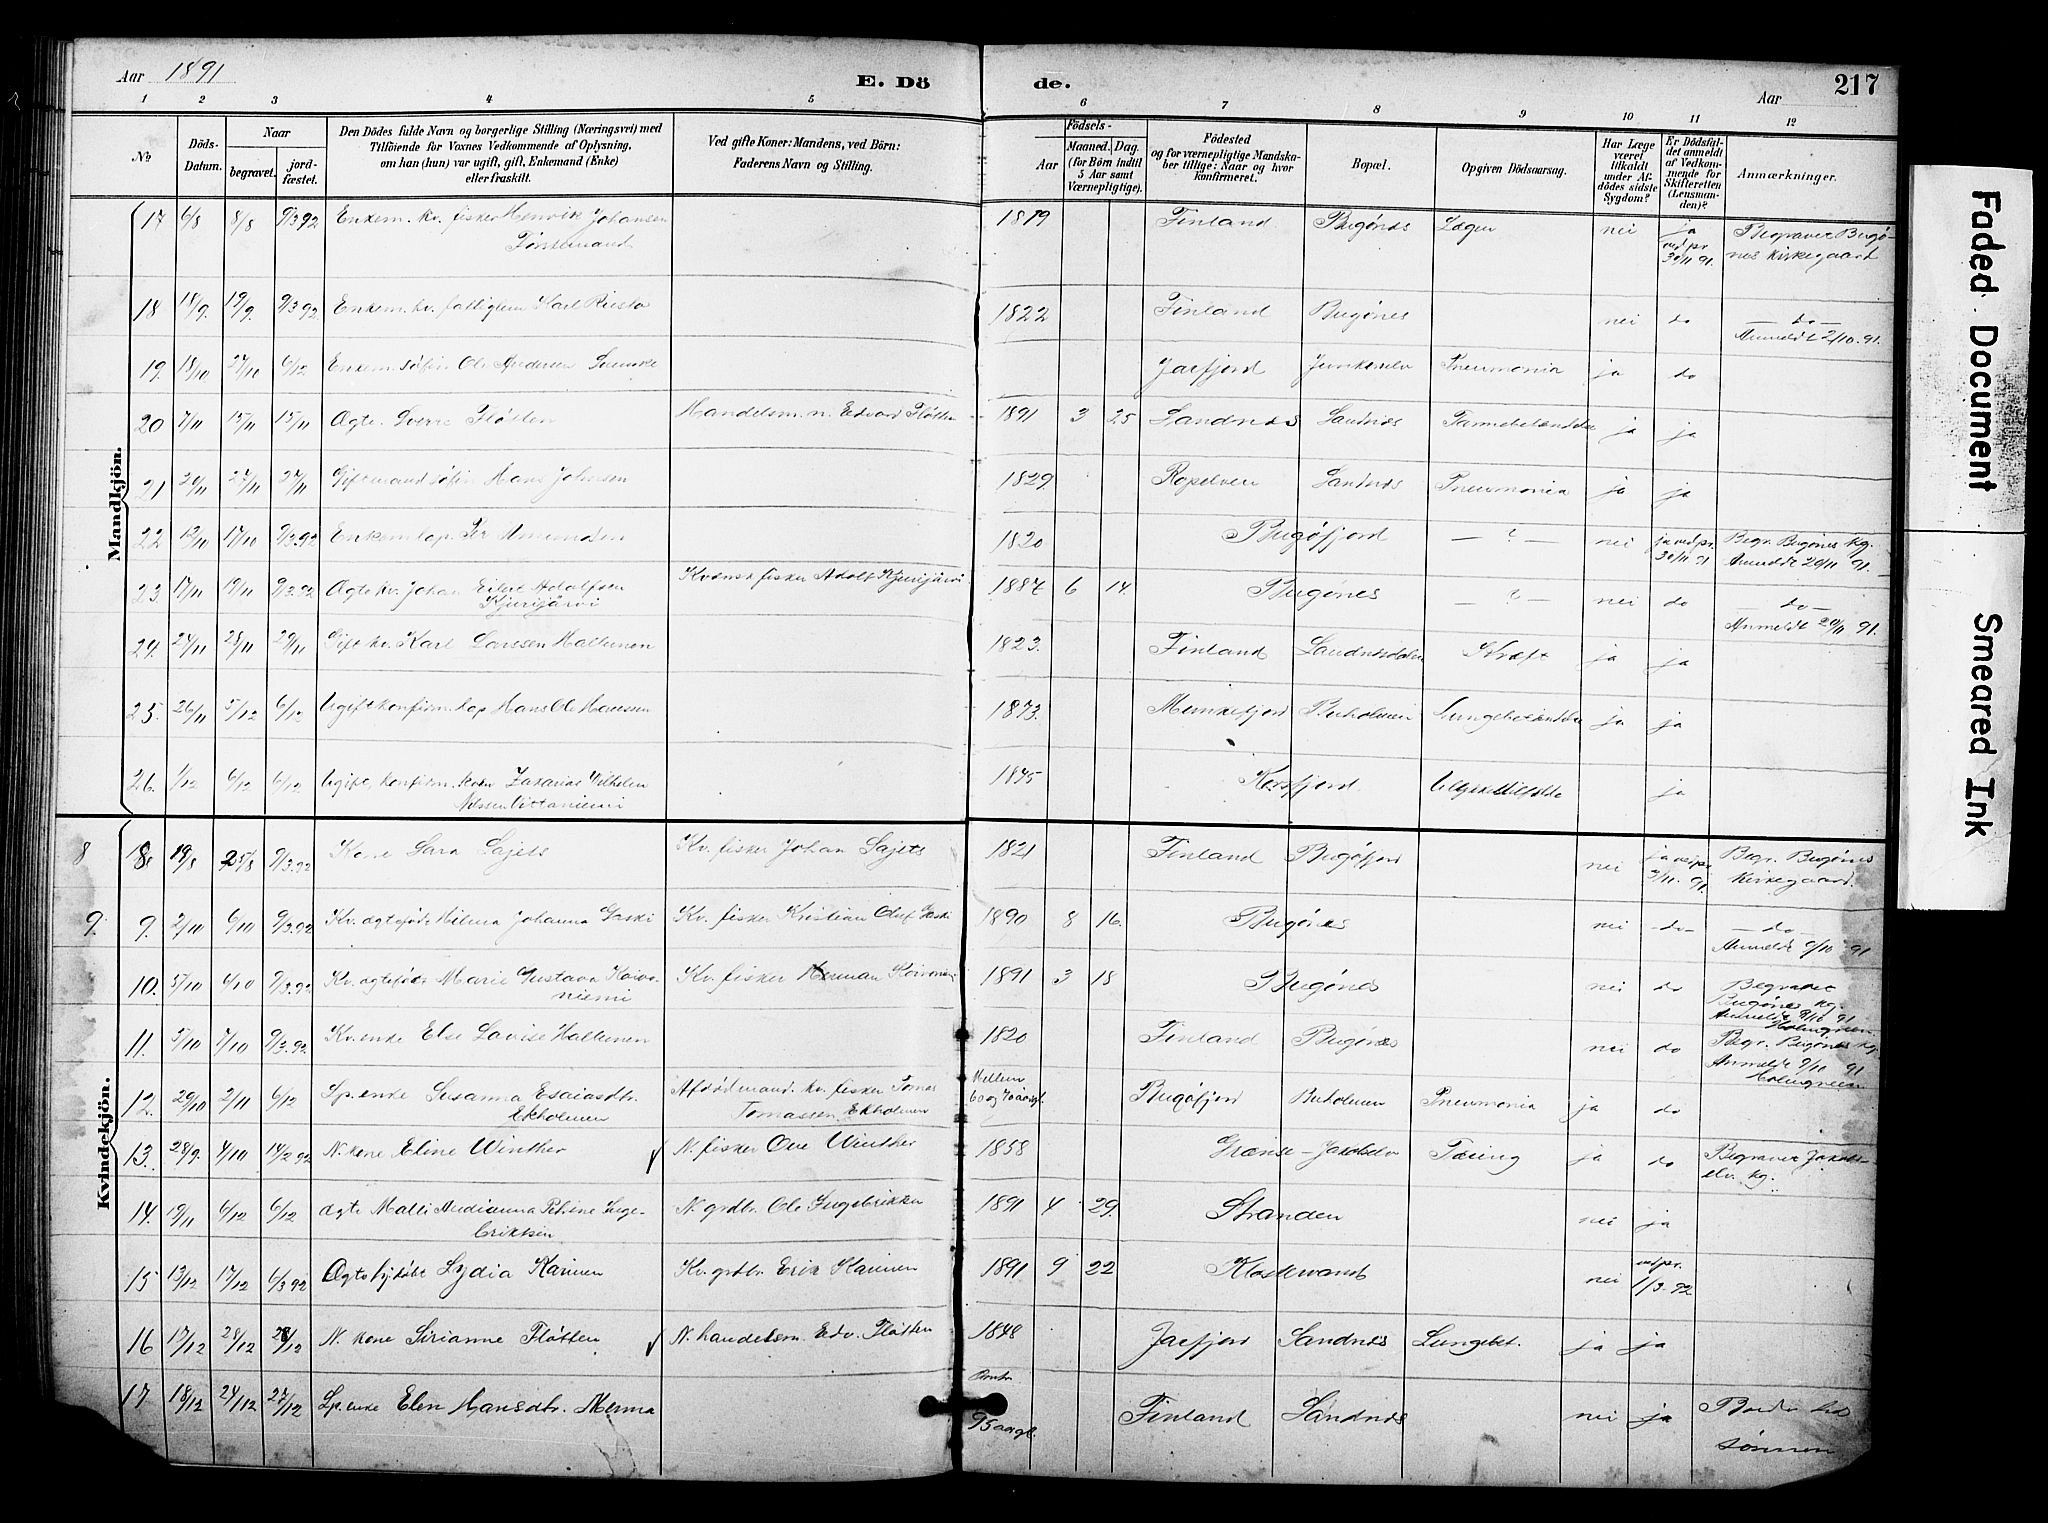 Aar 1891
E. Dö
de.
Aar
217
1 2 3 4 5 6 7 8 9 10 11 12
No
Döds-Datum.
Naar
begravet.
jord-fæstet.
Den Dödes fulde Navn og borgerlige Stilling (Næringsvei) med
Tilföiende for Voxnes Vedkommende af Oplysning,
om han (hun) var ugift, gift, Enkemand (Enke)
eller fraskilt.
Ved gifte Koner: Mandens, ved Börn:
Faderens Navn og Stilling.
Födsels-
Aar
Maaned. Dag.
(for Börn indtil
5 Aar samt
Værnepligtige).
Födested
og for værnepligtige Mandska-
ber tillige: Naar og hvor
konfirmeret.
Bopæl.
Opgiven Dödsaarsag.
Har Læge
været
tilkaldt
under Af-
dödes sidste
Sygdom?
Er Dödsfal-
det anmeldt
af Vedkom-
mende for
Skifteretten
(Lensman-
den)?
Anmærkninger.
Mandkjön.
17 6/8 8/8 9/3 92 Enkem. kv. fisker Henrik Johansen 1819 Finland Bugönes nei ja Begravet Bugö-
ved pr. 30/11 91. nes Kirkegaard
18 18/9. 19/9. 9/3 92. Enkem. kv. fattiglem Karl Riesto 1822 Finland Bugönes nei do — do —
Anmeldt 2/10 91.
19. 18/10 27/10 6/12 Enkem. söfin Ole Andersen Jarfjord Junkerelv Pneumonia ja do
20 7/11 15/11 15/11 Ægte. Sverre Flötten Handelsm. n. Edvard Flötten 1891 3 25 Sandnes Sandnes ja ja
21 20/11 27/11 27/11 Giftmand söfin Hans Johnsen 1829. Ropelven Sandnes Pneumonia ja ja
22 12/10 17/10 9/3.92 Enkem. lap. Per Amundsen 1820 Bugöfjord — ? — nei ja ved pr. 30/11 91 Begr. Bugönes kg.
Anmeldt 29/11 91.
23. 17/11 19/11 9/3.92 Ægte kv. Johan Eilert Adolfsen Kvænsk fisker Adolf Kjerijärvi 1887 6 14. Bugönes — ? — nei do — do —
Kjerijärvi Anmeldt 29/11 91.
24. 24/11 28/11 29/11 Gift kv. Karl Larssen Haltunen 1823. Finland Sandnesdalen Kræft ja ja
25. 26/11 5/12 6/12 Ugift konfirm. lap Hans Ole Hansen 1873. Munkefjord Buholmen ja ja
26. 1/12 6/12 6/12 Ugift, konfirm. kvæn Zakarias Vilhelm 1875 Korsfjord. ja
Nilssen
Kvindekjön.
8 8 19/8 25/8 9/3.92 Kone Sara Sajets Kv. fisker Johan Sajets 1821 Finland Bugöfjord nei ja ved pr. 3/11. 91. Begr. Bugönes
Kirkegaard.
9. 9. 2/10 6/10 9/3.92 Kv. ægtefödt Hilma Johanna Kv. fisker Kristian Oluf 1890 8 16. Bugönes nei - do - — do —
Anmeldt 9/10 91
10. 5/10 6/10 9/3.92 Kv. ægtefödt Marie Gustava Koivo- Kv. fisker Herman 1891 3 18 Bugönes nei do Begravet
niemi Bugönes kg.
Anmeldt 9/10 91
Holmgreen.
11. 5/10 7/10 9/3.92 Kv. enke Else Lovise Haltunen 1820 Finland Bugönes nei do Begr. Bugönes kg.
Anmeldt 9/10 91
Holmgreen
12. 29/10 2/11 6/12 Lp. enke Susanna Esaiasdtr. Afdöd mand. kv. fisker Tomas Mellem Bugöfjord Buholmen Pneumonia ja do
Ekholmen Tomassen Ekholmen 60 og 70 aar gl.
13. 28/9. 4/10 14/2 92 N. kone Eline Winther N. fisker Ove Winther 1858 Grænse-Jakobselv Tæring ja do Begravet Jakobs-
elv. kg.
14. 19/11 6/12 6/12 ægte Malli Andianna Petrine Inge- N. grdbr. Ole Ingebrikken 1891 4 29. Stranden nei ja
briktsen
15 13/12 17/12 6/3 92 Ægtefödt Lydia Karinen Kv. grdbr. Erik Karinen 1891 9 22 Klostervand nei ved pr. 1/3. 92
16 17/12 28/12 28/12 N. kone Sirianne Flötten N. handelsm. Edv. Flötten 1848 Jarfjord Sandnes Lungebet. ja ja
17 18/12 24/12 27/12 Lp. enke Elen Hansdtr. Menna 95 aar gl. Finland Sandnes nei ja
sönnen
Faded Document
Smeared Ink